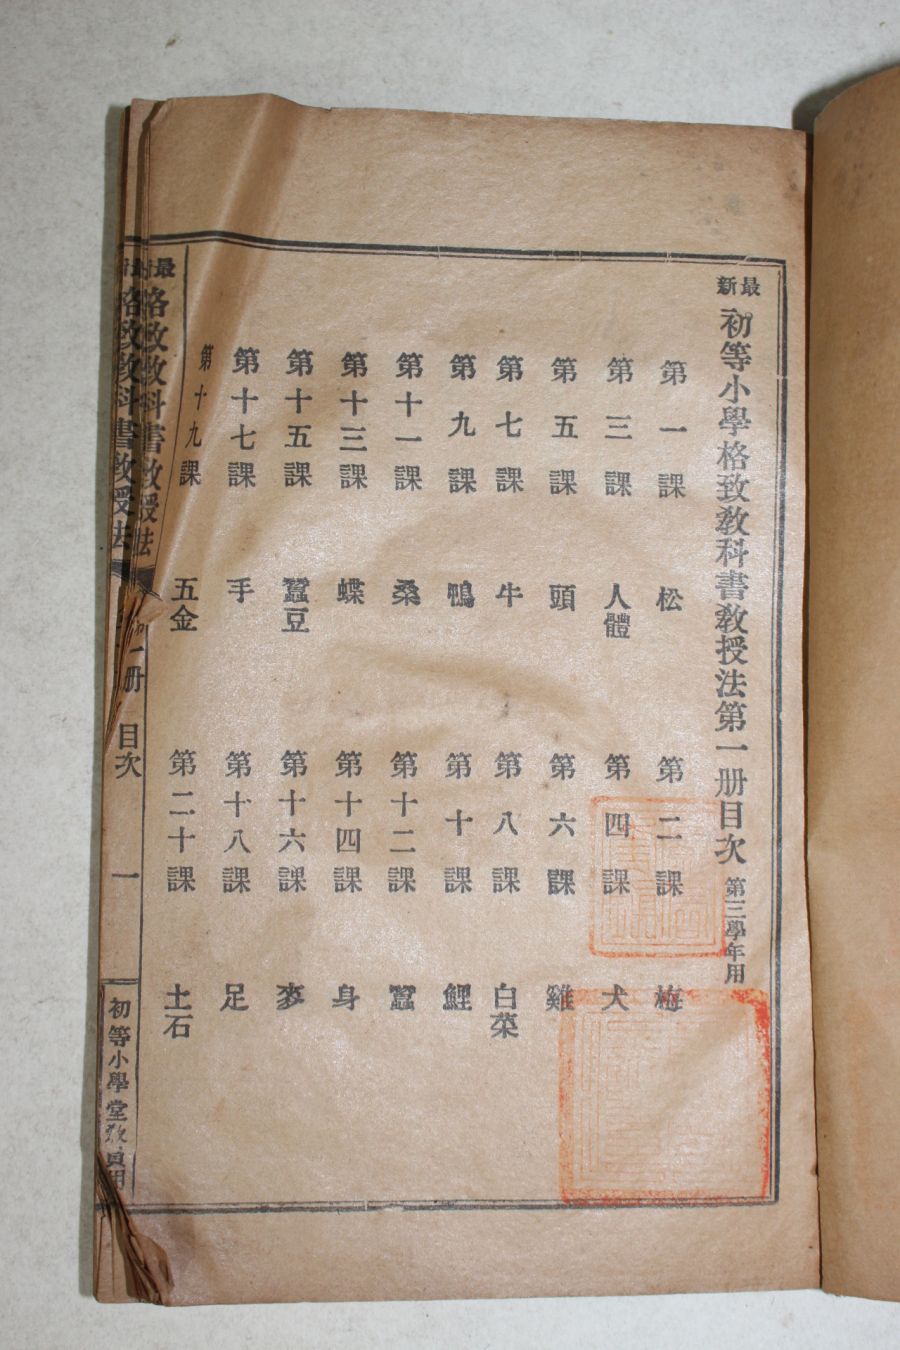 最新
初等小學格致教科書教授法第一册目次 第三學年用
第一課 松 第二課 梅
第三課 人體 第四課 犬
第五課 頭 第六課 雞
第七課 牛 第八課 白菜
第九課 鴨 第十課 鯉
第十一課 桑 第十二課 蠶
第十三課 蝶 第十四課 身
第十五課 蠶豆 第十六課 麥
第十七課 手 第十八課 足
第十九課 五金 第二十課 土石
格致教科書教授法 一册 目次 一 初等小學堂教員用
格致教科書教授法